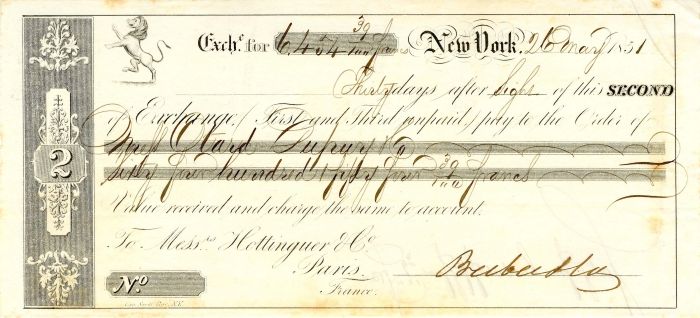 Exchᵉ for 6,454 30/100 francs New York. 26 May 1851
Thirty days after Sight of this SECOND
of Exchange, (First and Third unpaid) pay to the Order of
Mess Otard Dupuy & Co
sixty four hundred & fifty four 30/100 francs
Value received and charge the same to account.
To Messʳˢ Hottinguer & Cº
Paris.
France.
2
Nº